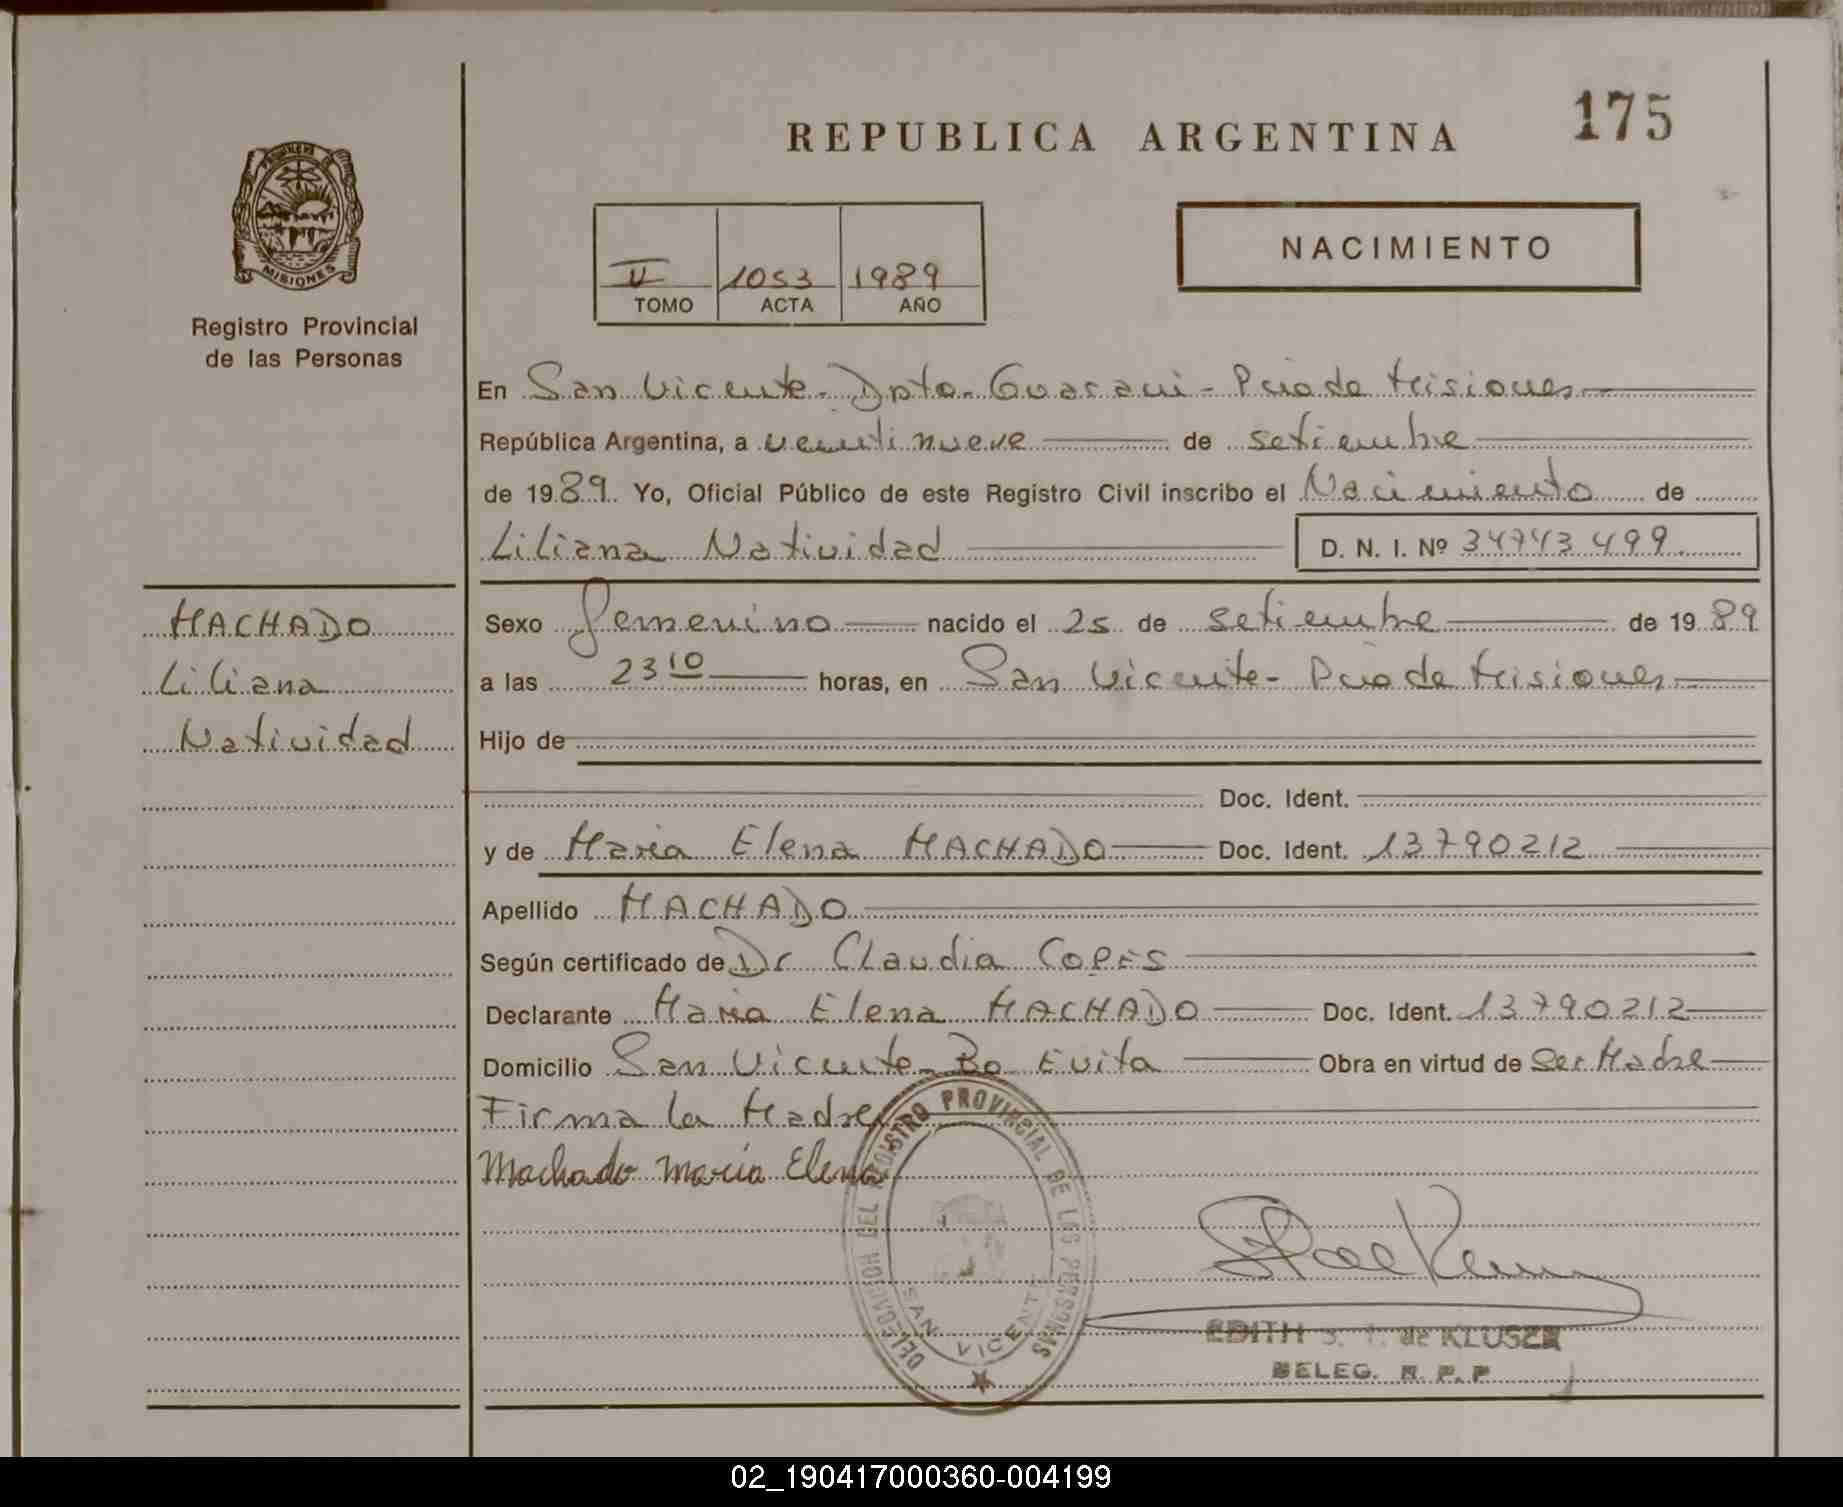 175
REPUBLICA ARGENTINA
PROVINCIA DE
MISIONES
Registro Provincial
de las Personas
NACIMIENTO
II 1053 1989
TOMO ACTA AÑO
En San Vicente - Dpto. Guarani - Pcia de Misiones
República Argentina, a veintinueve de setiembre
de 1989. Yo, Oficial Público de este Registro Civil inscribo el Nacimiento de
Liliana Natividad D. N. I. Nº 34743499
MACHADO
Liliana
Natividad
Sexo Femenino nacido el 25 de setiembre de 1989
a las 23 10 horas, en San Vicente - Pcia de Misiones
Hijo de
Doc. Ident.
y de Maria Elena MACHADO Doc. Ident. 13790212
Apellido MACHADO
Según certificado de Dr Claudia COPES
Declarante Maria Elena MACHADO Doc. Ident. 13790212
Domicilio San Vicente - Bo Evita Obra en virtud de Ser Madre
Firma la Madre
Machado Maria Elena
DELEGACION DEL REGISTRO PROVINCIAL DE LAS PERSONAS
SAN VICENTE
EDITH de KLUSZA
DELEG. R. P. P
02_190417000360-004199